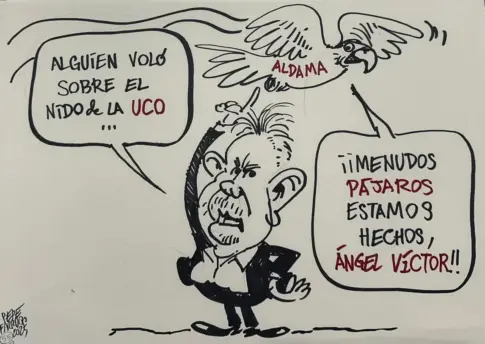 ALGUIEN VOLÓ
SOBRE EL
NIDO de LA UCO
...
ALDAMA
¡¡MENUDOS
PÁJAROS
ESTAMOS
HECHOS,
ÁNGEL VÍCTOR!!